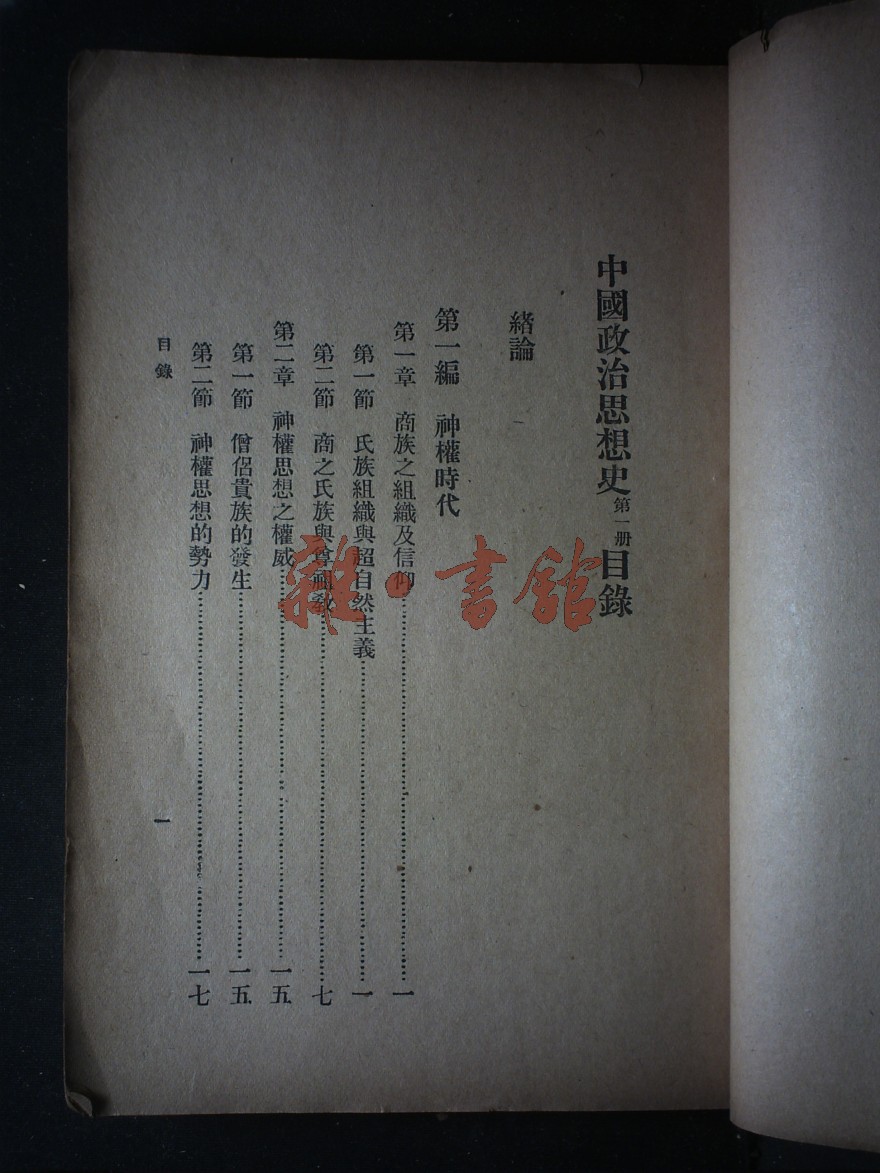 中國政治思想史第一册目錄
緒論
第一編　神權時代
第一章　商族之組織及信仰……一
第一節　氏族組織與超自然主義……一
第二節　商之氏族與尊祖教……七
第二章　神權思想之權威……一五
第一節　僧侶貴族的發生……一五
第二節　神權思想的勢力……一七
目錄
一
雜·書館